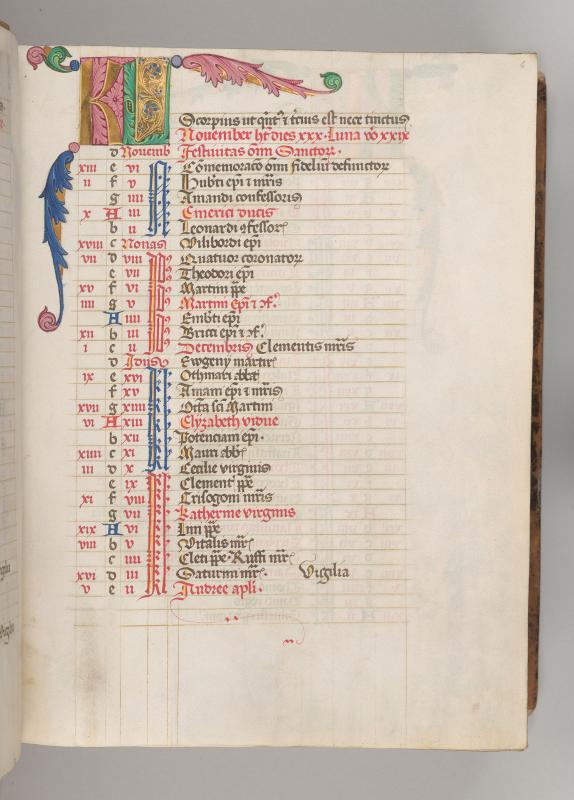 6
KL Scorpius ut quīt ꝛ tcius est nece tinctus
November hꝫ dies xxx · Luna vo xxix
d Novemb Festivitas oīm Sanctor ·
xiii e vi Cōmemoraco oīm fideliū defunctor
ii f v Hubti epi ꝛ mris
g iiii Amandi confessoris
x A iii Emerici ducis
b ii Leonardi ꝯfessor
xviii c Nonas Vilibordi epi
vii d viii Quatuor coronator
e vii Theodori epi
xv f vi Martini ppe
iiii g v Martini Epi ꝛ ꝯf.
A iiii
xii b iii Bricci epi ꝛ ꝯf.
i c ii Decembris Clementis mris
d Idus Ewgeny martir
ix e xvi Othmari abb
f xv epi ꝛ mris
xvii g xiiii Octa sci Martini
vi A xiii Elyzabeth vidue
b xii Potenciani epi ·
xiiii c xi Mauri abb
iii d x Cecilie virginis
e ix Clement ppe
xi f viii Crisogoni mris
g vii Katherine virginis
xix A vi Lini ppe
viii b v Vitalis mr
c iiii Cleti ppe · Ruffi mr
xvi d iii Saturini mr · Vigilia
v e ii Andree apli ·